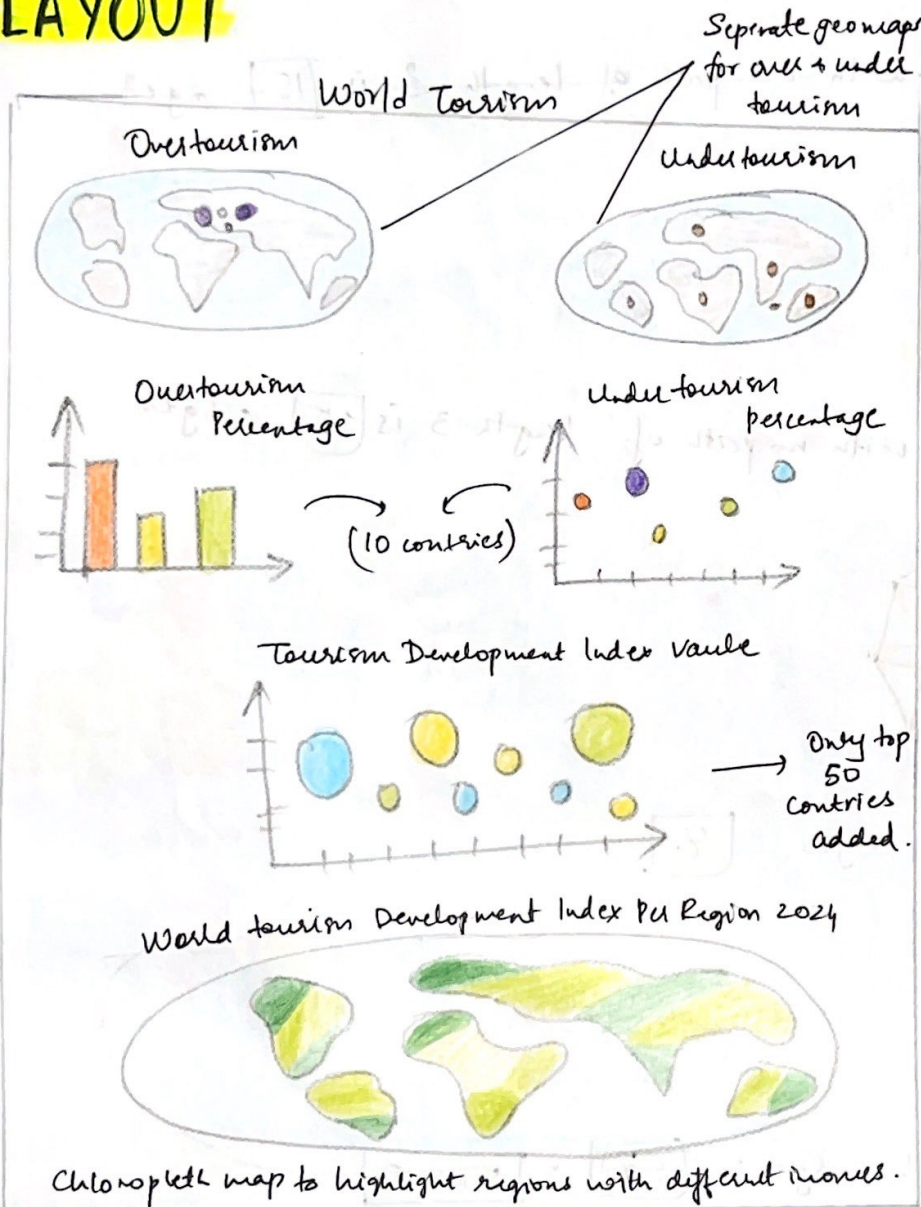 LAYOUT
Seperate geomaps
for over & under
tourism
World Tourism
Overtourism
Undertourism
Overtourism
Percentage
Undertourism
percentage
(10 contries)
Tourism Development Index Vaule
Only top
50
contries
added.
World tourism Development Index Per Region 2024
Chloropleth map to highlight regions with different